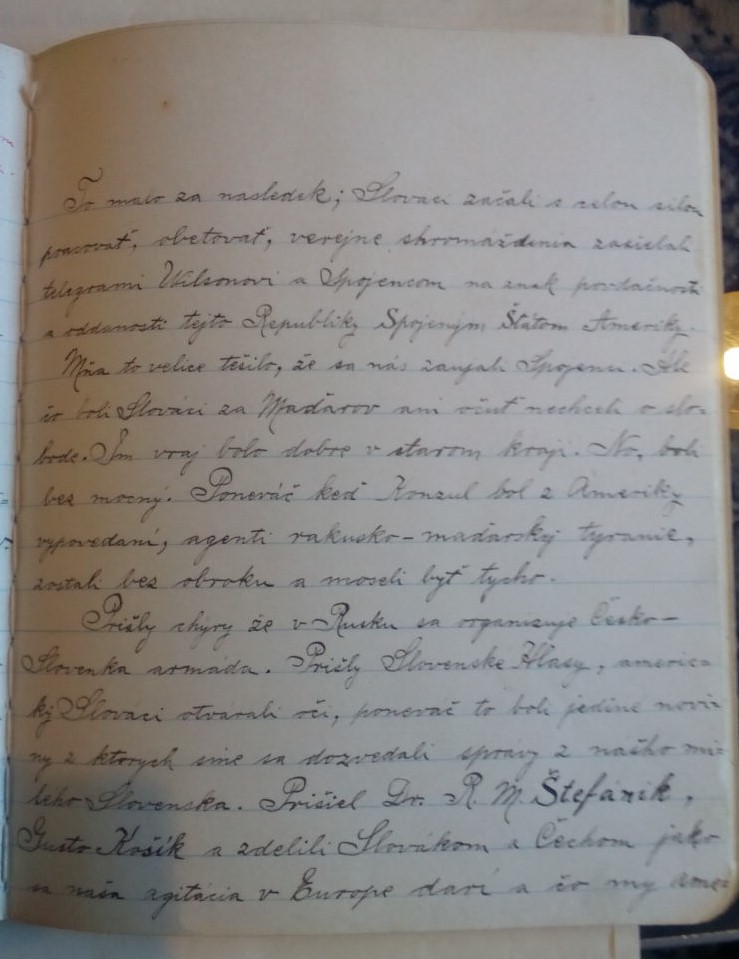 To malo za nasledek; Slovaci začali s celou silou
pracovať, obetovať, verejne shromáždenia zasielali
telegrami Wilsonovi a Spojencom na znak povdačnosti
a oddanosti tejto Republiky Spojeným Štátom Ameriky.
Mňa to velice tešilo, že sa nás zaujali Spojenci. Ale
čo boli Slováci za Maďarov ani očuť nechceli o slo-
bode. Im vraj bolo dobre v starom kraji. No, boli
bez mocný. Poneváč keď Konzul bol z Ameriky
vypovedaní, agenti rakusko-maďarskej tyranie,
zostali bez obroku a moseli byť tycho.
Prišly chyry že v Rusku sa organizuje Česko-
Slovenka armáda. Prišly Slovenske Hlasy, americ-
ký Slováci otvárali oči, poneváč to boli jedine novi-
ny z ktorych sme sa dozvedali spravy z našho mi-
leho Slovenska. Prišiel Dr. R. M. Štefánik,
Gusto Košík a zdelili Slovákom a Čechom jako
sa naša agitácia v Europe darí a čo my ame-